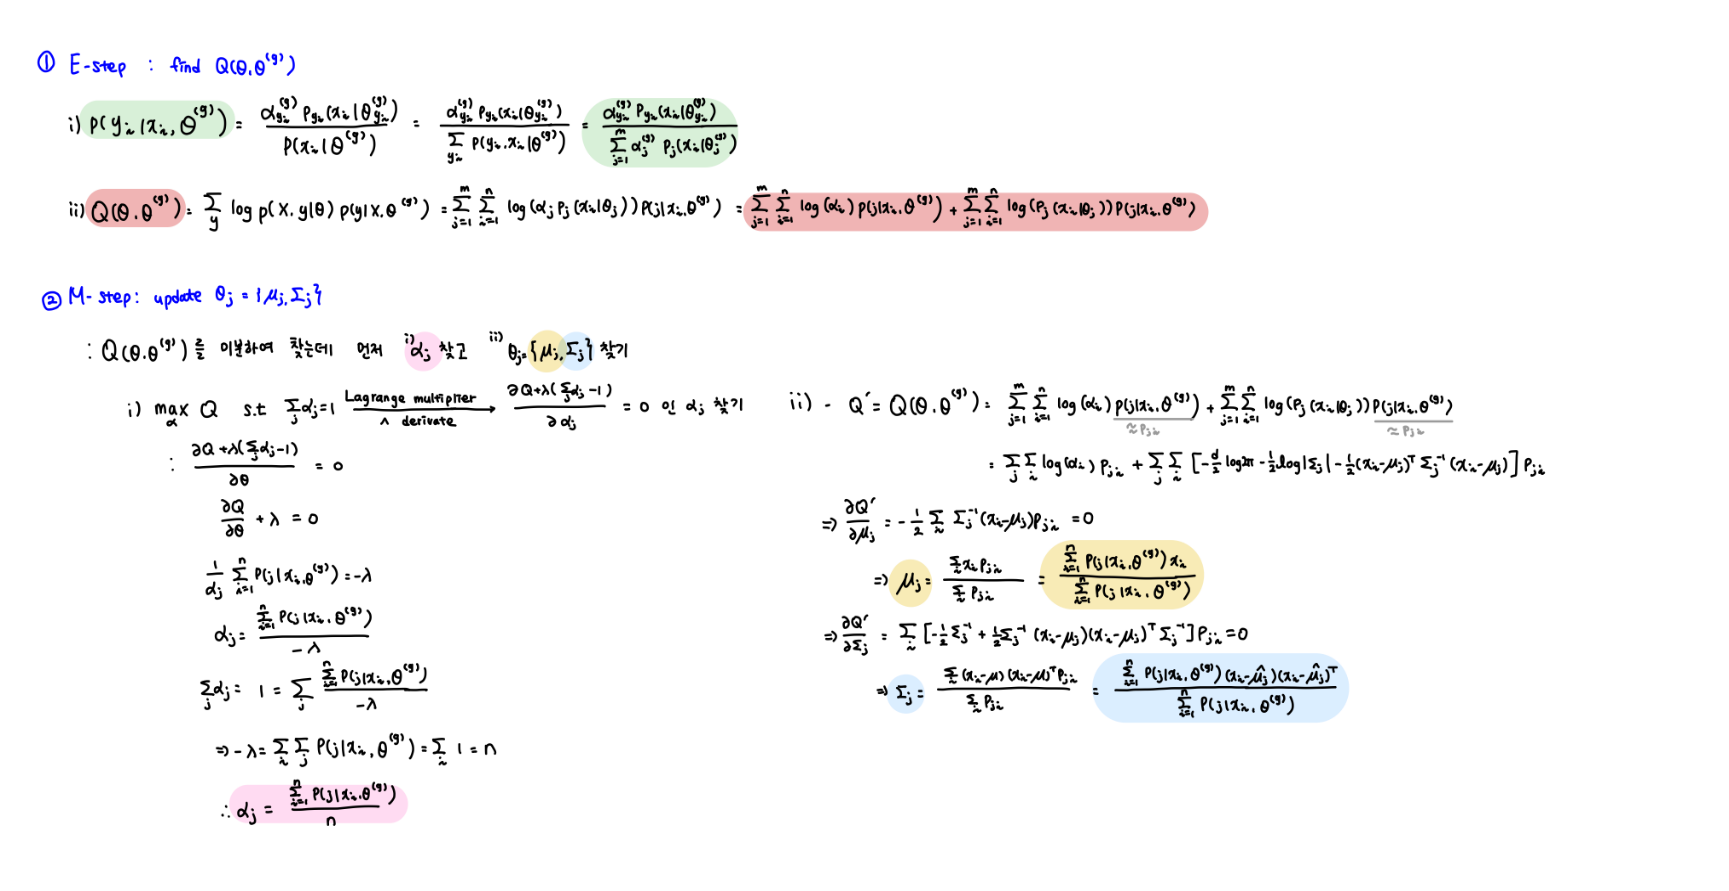 ① E-step : find Q(θ,θ^(g))
i) P(y_i|x_i,θ^(g)) = α_{y_i}^(g) P_{y_i}(x_i|θ_{y_i}^(g)) / P(x_i|θ^(g)) = α_{y_i}^(g) P_{y_i}(x_i|θ_{y_i}^(g)) / Σ_{y_i} P(y_i,x_i|θ^(g)) = α_{y_i}^(g) P_{y_i}(x_i|θ_{y_i}^(g)) / Σ_{j=1}^m α_j^(g) P_j(x_i|θ_j^(g))
ii) Q(θ,θ^(g)) = Σ_y log p(X,y|θ) p(y|X,θ^(g)) = Σ_{j=1}^m Σ_{i=1}^n log(α_j P_j(x_i|θ_j)) P(j|x_i,θ^(g)) = Σ_{j=1}^m Σ_{i=1}^n log(α_i) P(j|x_i,θ^(g)) + Σ_{j=1}^m Σ_{i=1}^n log(P_j(x_i|θ_j)) P(j|x_i,θ^(g))
② M-step : update θ_j = {μ_j, Σ_j}
: Q(θ,θ^(g))를 미분하여 찾는데 먼저 i) α_j 찾고 ii) θ_j = {μ_j, Σ_j} 찾기
i) max_α Q s.t Σ_j α_j = 1 Lagrange multiplier ∧ derivate → ∂Q+λ(Σ_j α_j -1) / ∂α_j = 0 인 α_j 찾기
: ∂Q+λ(Σ_j α_j -1) / ∂θ = 0
∂Q/∂θ + λ = 0
1/α_j Σ_{i=1}^n P(j|x_i,θ^(g)) = -λ
α_j = Σ_{i=1}^n P(j|x_i,θ^(g)) / -λ
Σ_j α_j = 1 = Σ_j Σ_{i=1}^n P(j|x_i,θ^(g)) / -λ
⇒ -λ = Σ_i Σ_j P(j|x_i,θ^(g)) = Σ_i 1 = n
∴ α_j = Σ_{i=1}^n P(j|x_i,θ^(g)) / n
ii) - Q' = Q(θ,θ^(g)) = Σ_{j=1}^m Σ_{i=1}^n log(α_i) P(j|x_i,θ^(g)) + Σ_{j=1}^m Σ_{i=1}^n log(P_j(x_i|θ_j)) P(j|x_i,θ^(g))
≈ P_ji ≈ P_ji
= Σ_j Σ_i log(α_i) P_ji + Σ_j Σ_i [-d/2 log2π - 1/2 log|Σ_j| - 1/2 (x_i-μ_j)^T Σ_j^-1 (x_i-μ_j)] P_ji
⇒ ∂Q'/∂μ_j = -1/2 Σ_i Σ_j^-1 (x_i-μ_j) P_ji = 0
⇒ μ_j = Σ_i x_i P_ji / Σ_i P_ji = Σ_{i=1}^n P(j|x_i,θ^(g)) x_i / Σ_{i=1}^n P(j|x_i,θ^(g))
⇒ ∂Q'/∂Σ_j = Σ_i [-1/2 Σ_j^-1 + 1/2 Σ_j^-1 (x_i-μ_j)(x_i-μ_j)^T Σ_j^-1] P_ji = 0
⇒ Σ_j = Σ_i (x_i-μ)(x_i-μ)^T P_ji / Σ_i P_ji = Σ_{i=1}^n P(j|x_i,θ^(g)) (x_i-μ̂_j)(x_i-μ̂_j)^T / Σ_{i=1}^n P(j|x_i,θ^(g))